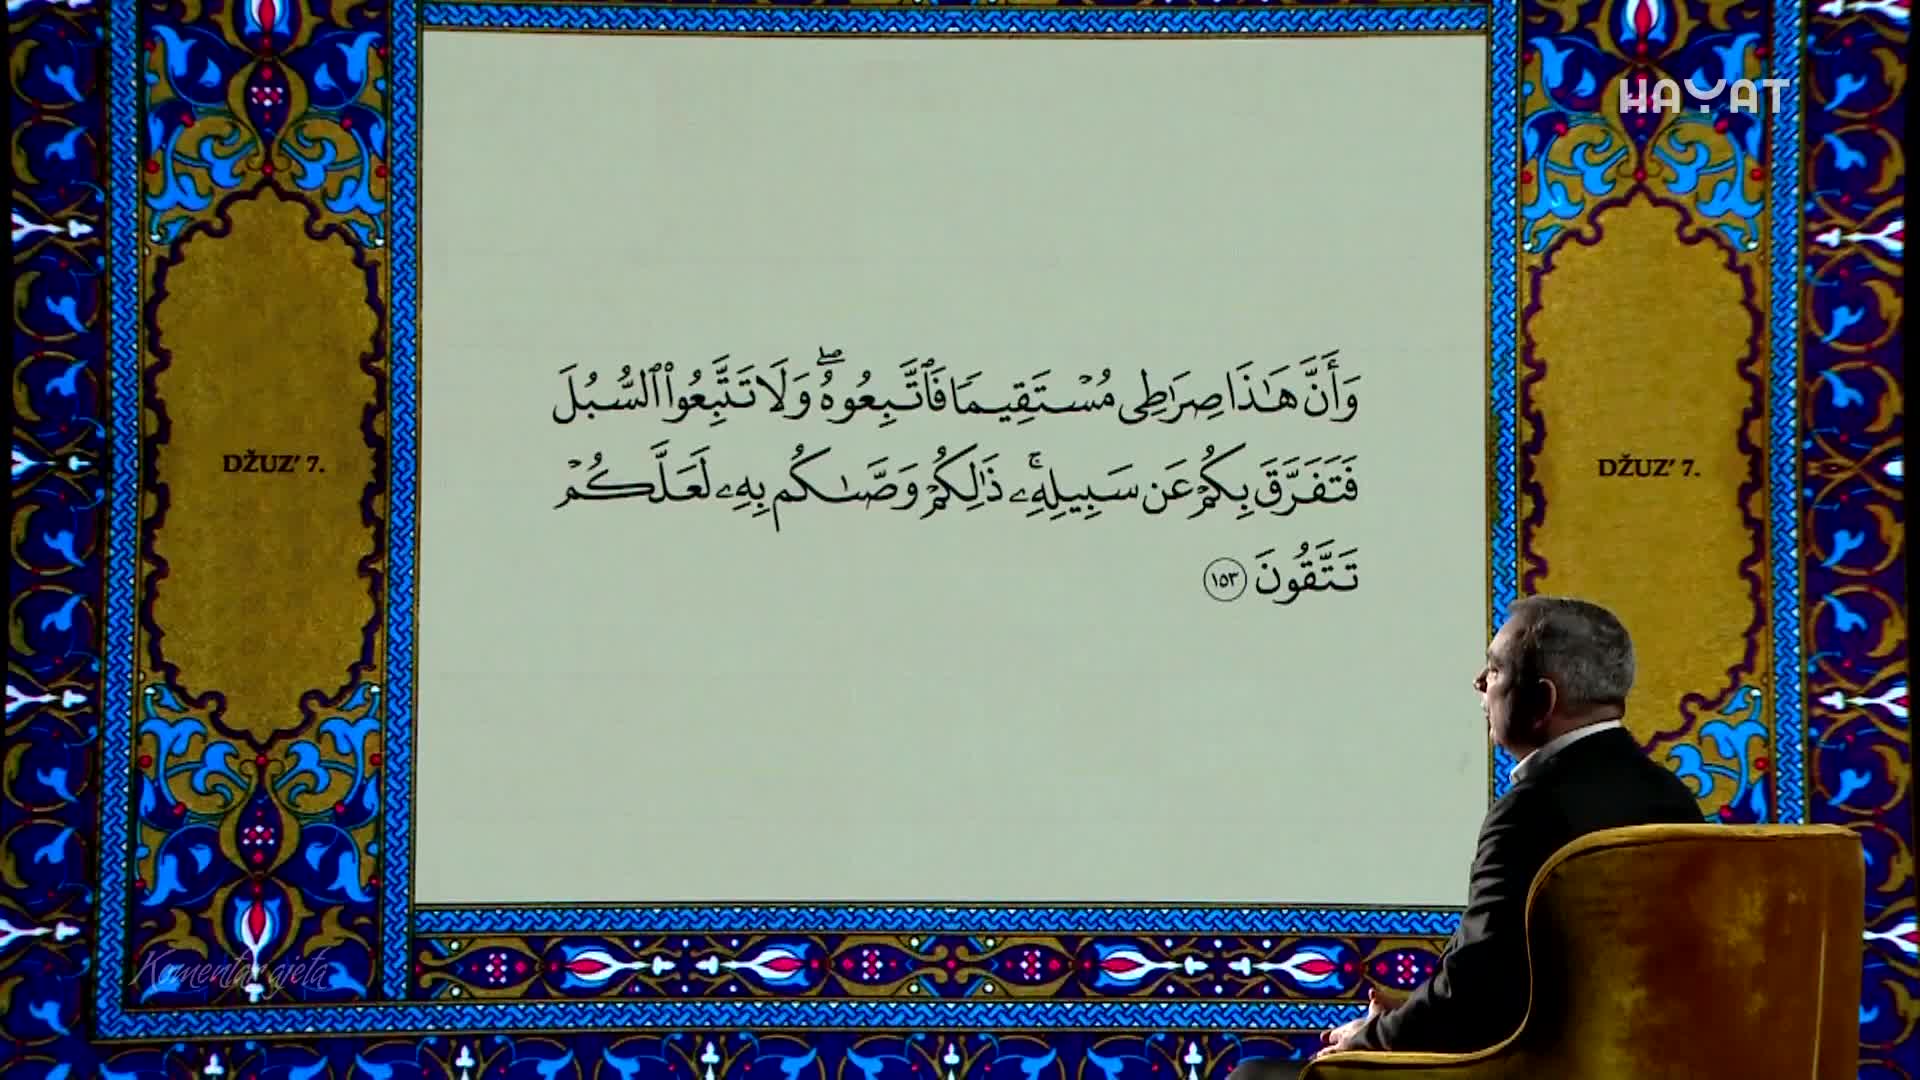 HAYAT
وَأَنَّ هَٰذَا صِرَٰطِى مُسْتَقِيمًا فَٱتَّبِعُوهُ ۖ وَلَا تَتَّبِعُوا۟ ٱلسُّبُلَ
فَتَفَرَّقَ بِكُمْ عَن سَبِيلِهِۦ ۚ ذَٰلِكُمْ وَصَّىٰكُم بِهِۦ لَعَلَّكُمْ
تَتَّقُونَ ١٥٣
DŽUZ' 7.
DŽUZ' 7.
Komentar ajeta